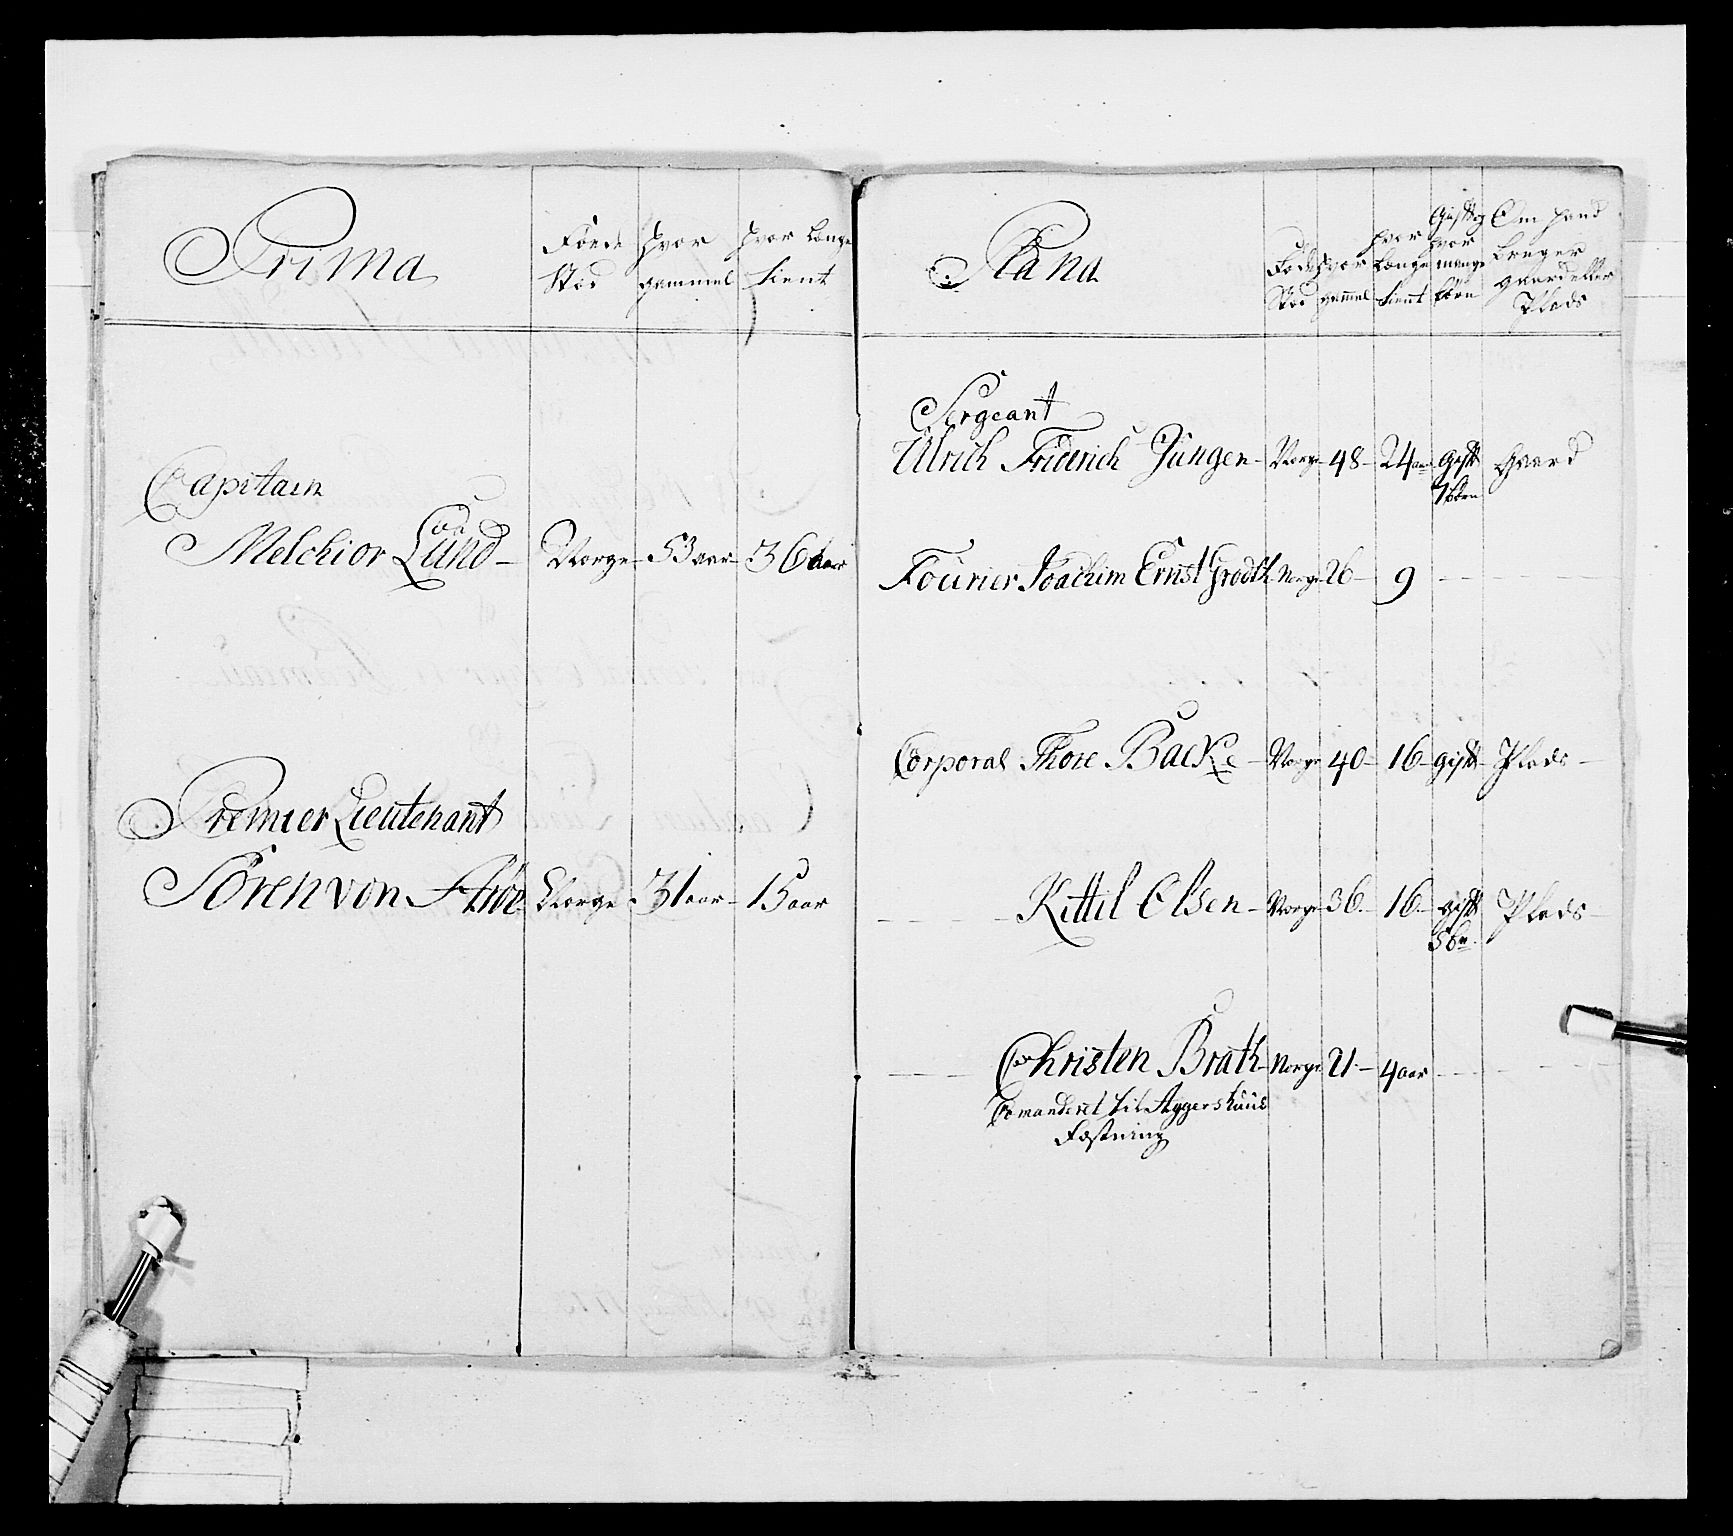 Prima
Föede Stæd
hvor gammel
hvor længe tient
Capitain
Melchior von Lünd - Norge - 53 aar - 36 aar
Premier Lieutenant
Sören von Norge - 31 aar - 15 aar
Plana
Föde Stæd
hvor gammel
hvor længe tient
Gift og hvor mange börn
Om hand bruger gaard eller Plads
Sergeant
Ulrich Friderich Jüngen - Norge - 48 - 24 aar gift Gaard
7 börn
Fourier Joachim Ernst Grodth Norge 26 - 9
Corporal Thore Backe - Norge 40 - 16 - gift - Plads -
Kittil Olsen - Norge 36 - 16 - gift Plads -
5 bn
Christen Brath - Norge 21 - 4 aar
Comanderet til Aggershuus
Fæstning